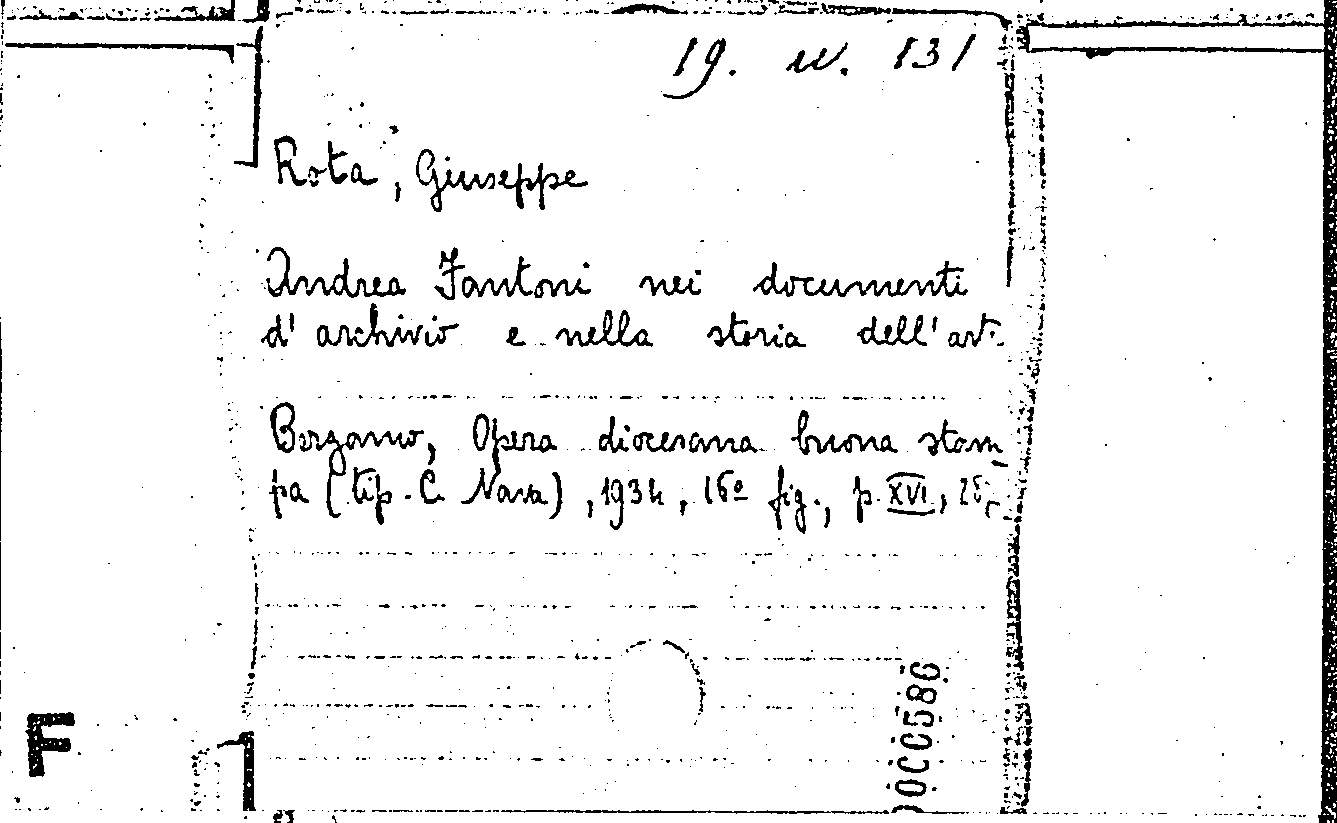 19. W. 131
Rota, Giuseppe
Andrea Fantoni nei documenti
d'archivio e nella storia dell'art
Bergamo, Opera diocesana buona stam-
pa (tip. C. Nava), 1934, 16º fig., p. XVI,
F